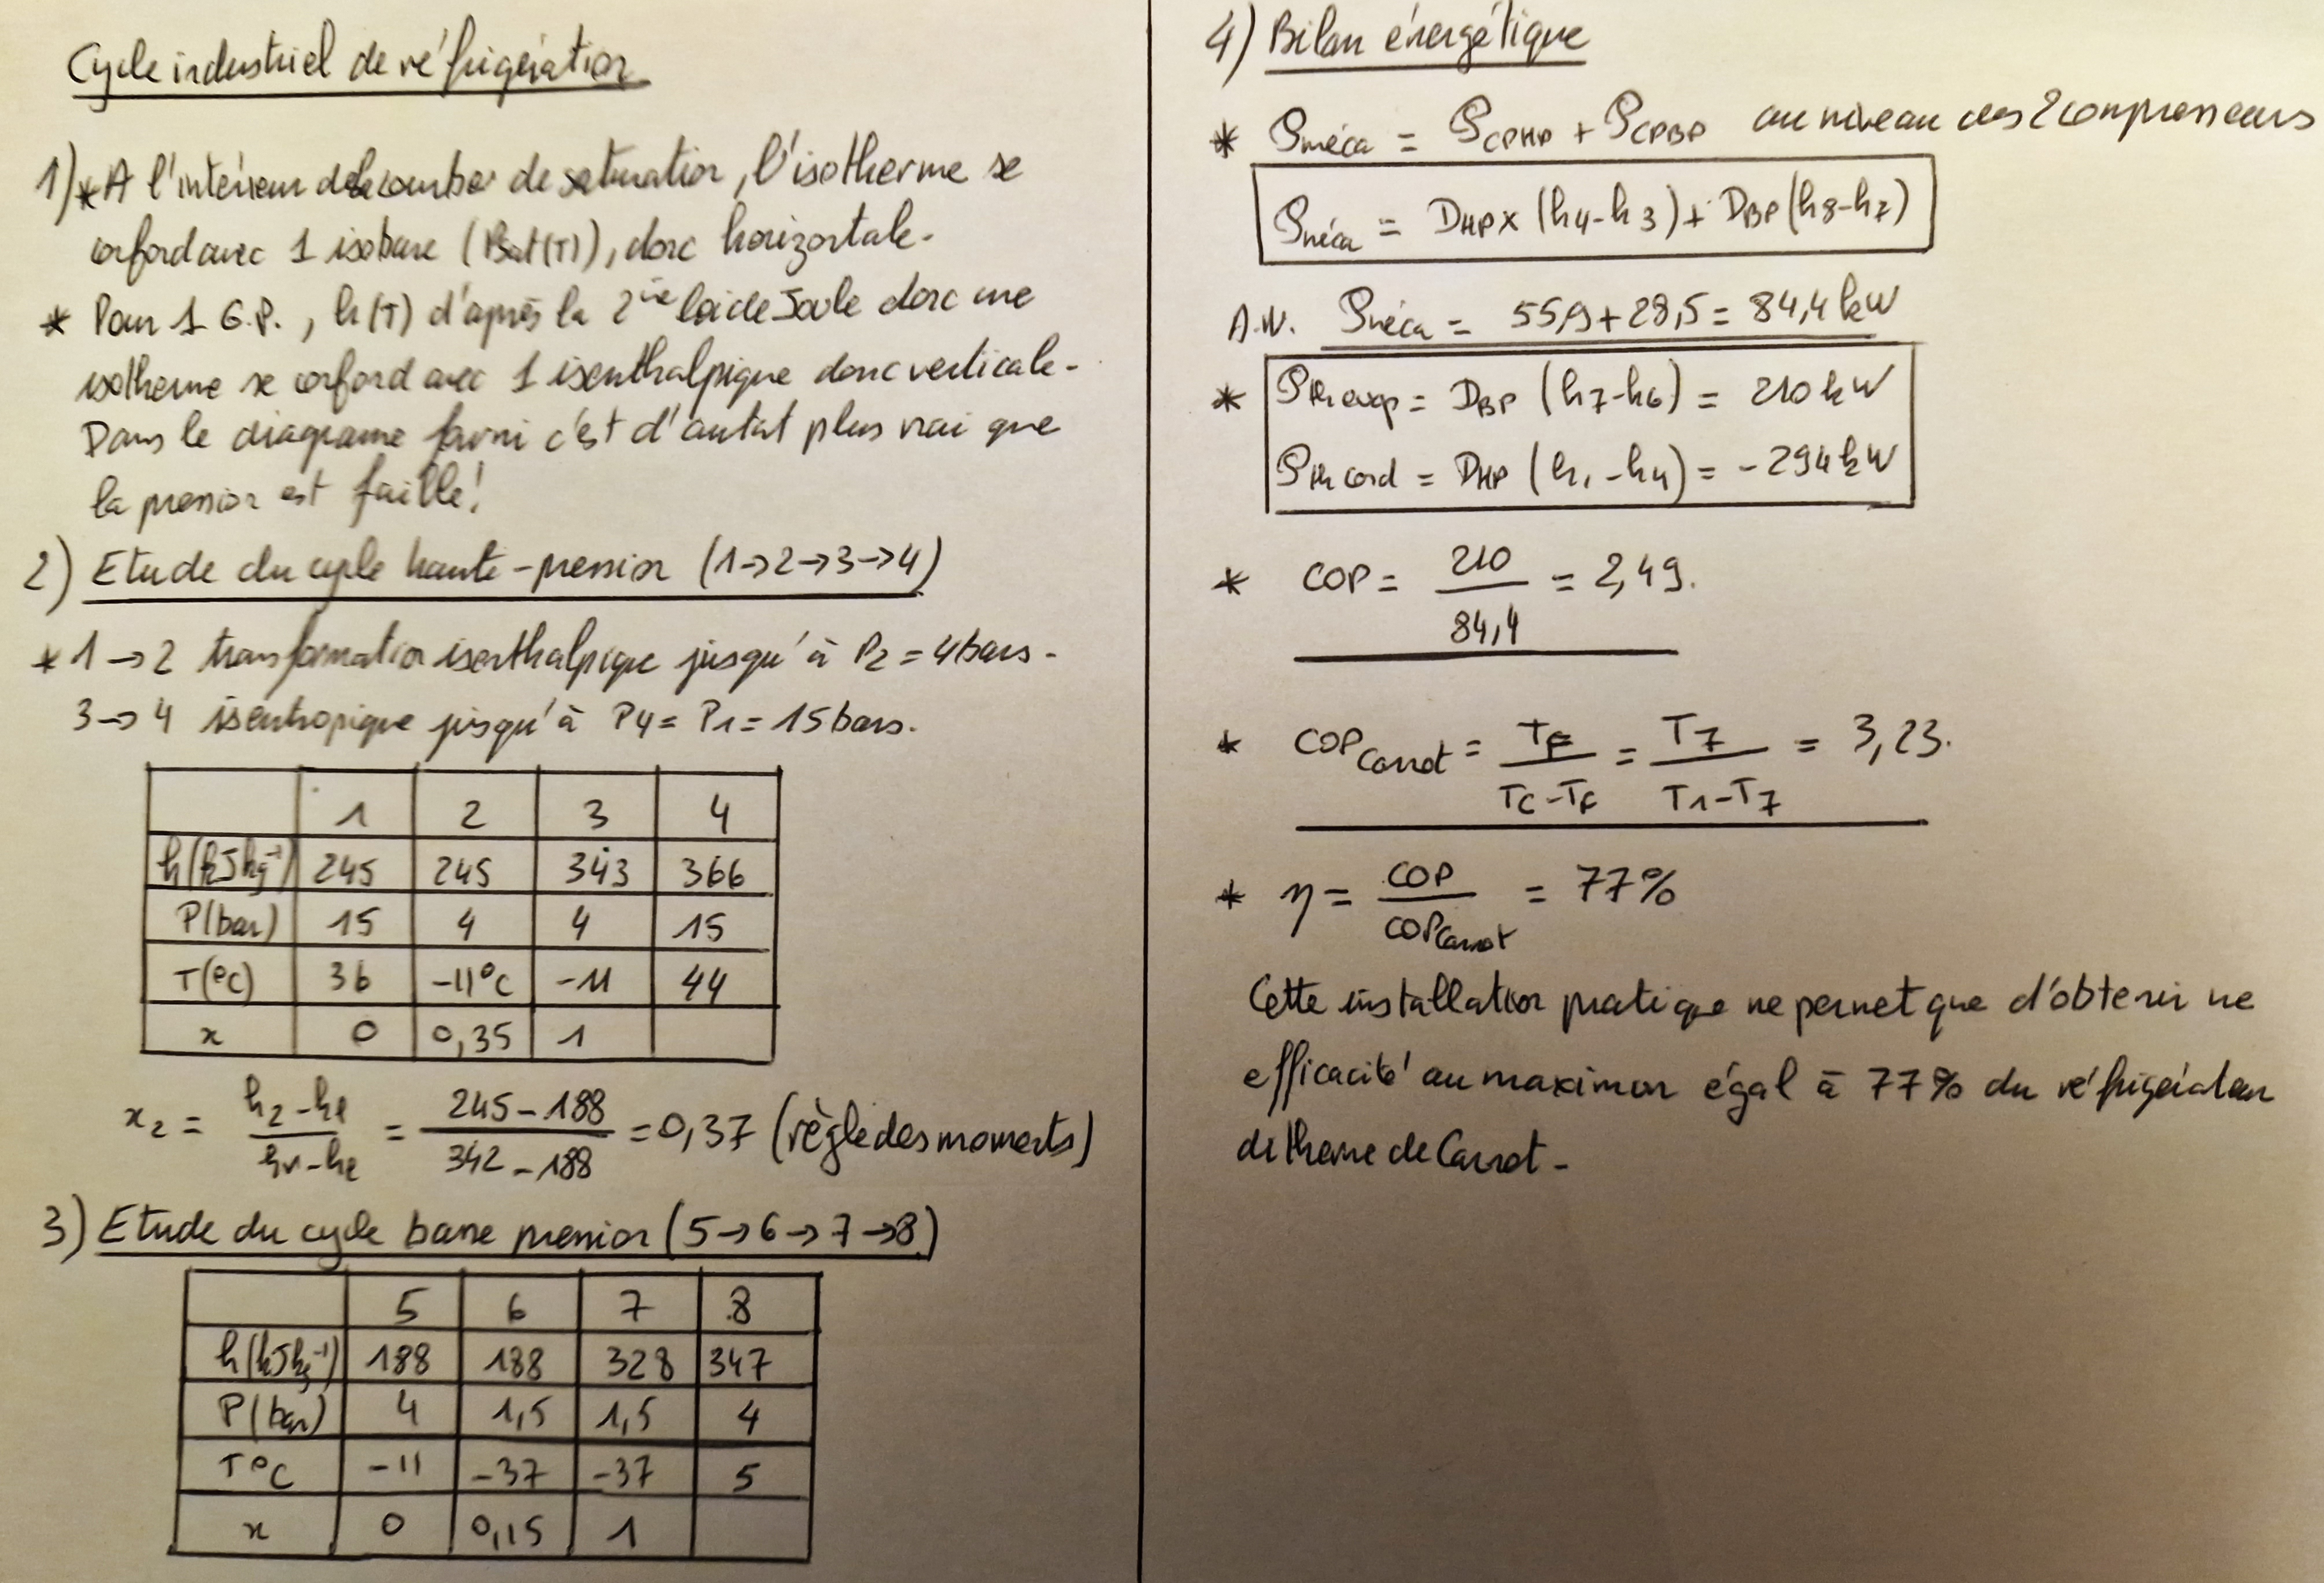 Cycle industriel de réfrigération
1) * A l'intérieur de la courbe de saturation, l'isotherme se
confond avec 1 isobare (Psat(T)), donc horizontale.
* Pour 1 G.P., h(T) d'après la 2ie loi de Joule donc une
isotherme se confond avec 1 isenthalpique donc verticale.
Dans le diagrame fourni c'est d'autat plus vrai que
la pression est faible!
2) Etude du cycle haute-pression (1→2→3→4)
* 1→2 transformation isenthalpique jusqu'à P2 = 4bars.
3→4 isentropique jusqu'à P4 = P1 = 15 bars.
1 2 3 4
h(kJkg⁻¹) 245 245 343 366
P(bar) 15 4 4 15
T(°C) 36 -11°C -11 44
x 0 0,35 1
x2 = (h2-hl)/(hv-hl) = (245-188)/(342-188) = 0,37 (règle des moments)
3) Etude du cycle basse pression (5→6→7→8)
5 6 7 8
h(kJkg⁻¹) 188 188 328 347
P(bar) 4 1,5 1,5 4
T°C -11 -37 -37 5
x 0 0,15 1
4) Bilan énergétique
* Pméca = PCPHP + PCPBP au niveau des 2 compresseurs
Pméca = DHP x (h4-h3) + DBP (h8-h7)
A.N. Pméca = 55,9 + 28,5 = 84,4 kW
* Pth evap = DBP (h7-h6) = 210 kW
Pth cond = DHP (h1-h4) = -294 kW
* COP = 210/84,4 = 2,49.
* COPCarnot = TF/(TC-TF) = T7/(T1-T7) = 3,23.
* η = COP/COPCarnot = 77%
Cette installation pratique ne permet que d'obtenir une
efficacité au maximum égal à 77% du réfrigérateur
ditherme de Carnot.